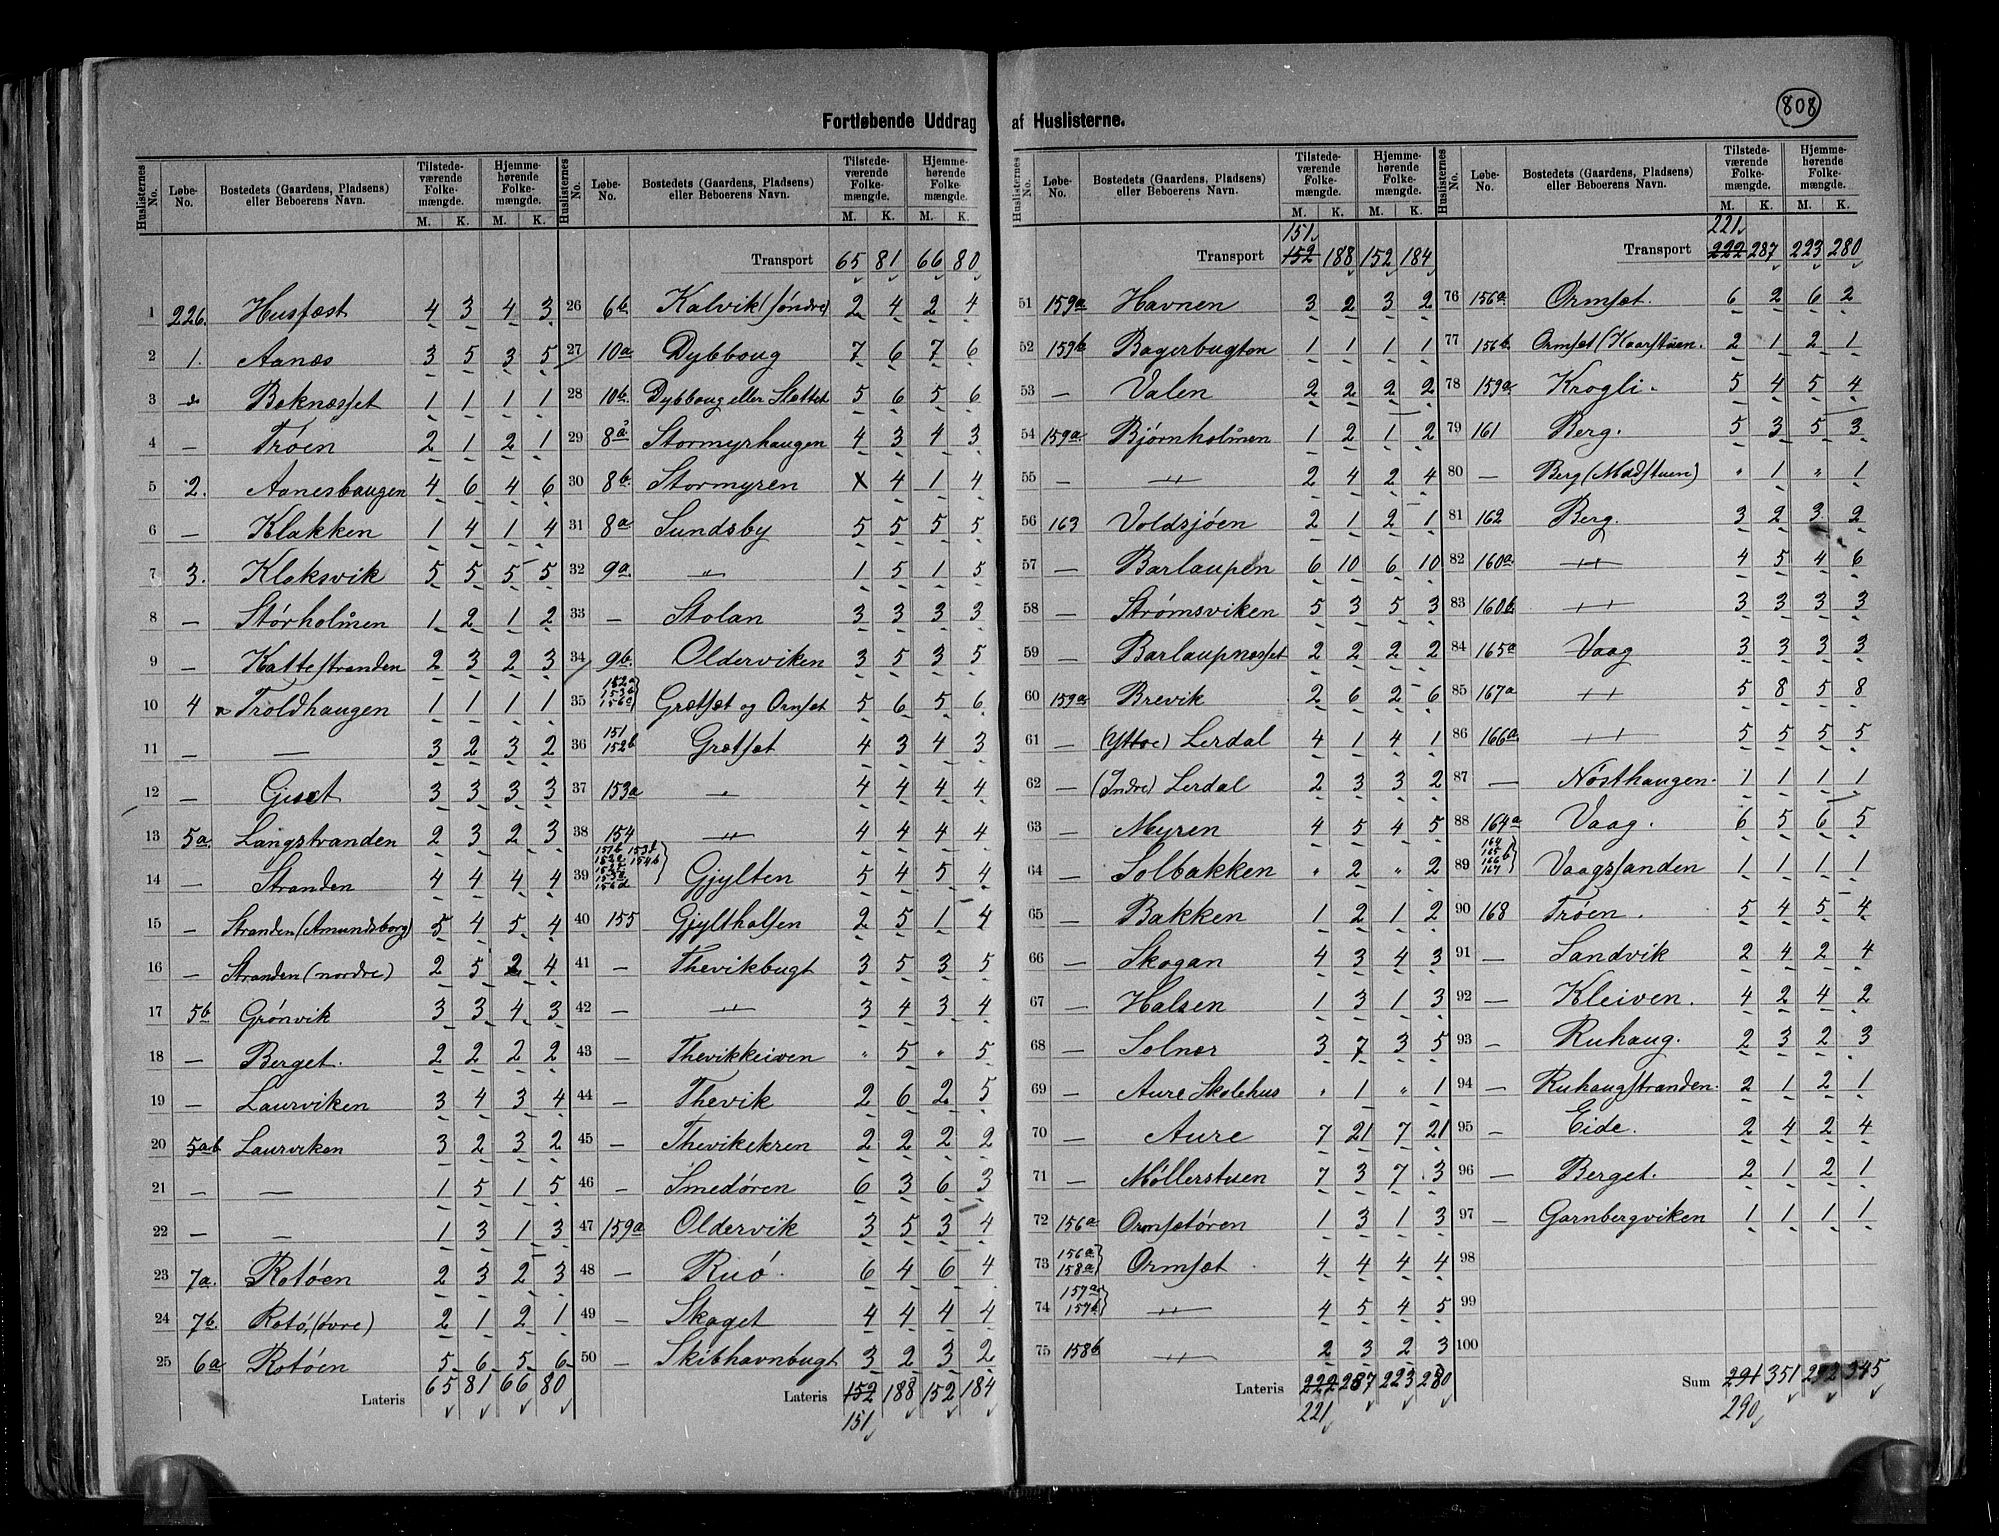 808
Fortløbende Uddrag af Huslisterne.
Huslisternes No. Løbe-No. Bostedets (Gaardens, Pladsens) eller Beboerens Navn. Tilstedeværende Folkemængde. M. K. Hjemmehørende Folkemængde. M. K.
1 226. Husfæst 4 3 4 3
2 1. Aanæs 3 5 3 5
3 Boknæsset 1 1 1 1
4 — Trøen 2 1 2 1
5 2. Aaneshaugen 4 6 4 6
6 — Klakken 1 4 1 4
7 3. Klaksvik 5 5 5 5
8 — Størholmen 1 2 1 2
9 — Kattestranden 2 3 2 3
10 4 Troldhaugen 1 1 1 1
11 — — 3 2 3 2
12 — Gjeset 3 3 3 3
13 5a. Langstranden 2 3 2 3
14 — Stranden 4 4 4 4
15 — Stranden (Amundsborg) 5 4 5 4
16 — Stranden (nordre) 2 5 2 4
17 5b Grønvik 3 3 4 3
18 — Berget. 2 2 2 2
19 — Laurviken 3 4 3 4
20 5ab Laurviken 3 2 3 2
21 — — 1 5 1 5
22 — — 1 3 1 3
23 7a. Rotøen 2 3 2 3
24 7b. Rotø, (øvre) 2 1 2 1
25 6a Rotøen 5 6 5 6
Lateris 65 81 66 80
Huslisternes No. Løbe-No. Bostedets (Gaardens, Pladsens) eller Beboerens Navn. Tilstedeværende Folkemængde. M. K. Hjemmehørende Folkemængde. M. K.
Transport 65 81 66 80
26 6b. Kalvik (søndre) 2 4 2 4
27 10a Dybboug 7 6 7 6
28 10b. Dybboug eller Slettet 5 6 5 6
29 8a Stormyrhaugen 4 3 4 3
30 8b. Stormyren X 4 1 4
31 8a Sundsby 5 5 5 5
32 9a. -"- 1 5 1 5
33 — Stolan 3 3 3 3
34 9b. Olderviken 3 5 3 5
35 152a 153b 156a Grætsæt og Ormsæt 5 6 5 6
36 151 152b Grætsæt 4 3 4 3
37 153a " 4 4 4 4
38 154 -"- 4 4 4 4
39 Gjylten 5 4 5 4
40 155 Gjylthalsen 2 5 1 4
41 — Thevikbugt 3 5 3 5
42 — -"- 3 4 3 4
43 — Thevikkeiven " 5 " 5
44 — Thevik 2 6 2 5
45 — Thevikekren 2 2 2 2
46 — Smedøren 6 3 6 3
47 159a Oldervik 3 5 3 4
48 — Ruø. 6 4 6 4
49 — Skaget 4 4 4 4
50 — Skibhavnbugt 3 2 3 2
Lateris 152 188 152 184
151
Huslisternes No. Løbe-No. Bostedets (Gaardens, Pladsens) eller Beboerens Navn. Tilstedeværende Folkemængde. M. K. Hjemmehørende Folkemængde. M. K.
151
Transport 152 188 152 184
51 159a Havnen 3 2 3 2
52 159b Bagerbugton 1 1 1 1
53 — Valen 2 2 2 2
54 159a. Bjørnholmen 1 2 1 2
55 — -"- 2 4 2 4
56 163 Voldsjøen 2 1 2 1
57 — Barlaupen 6 10 6 10
58 — Strømsviken 5 3 5 3
59 — Barlaupnæsset 2 2 2 2
60 159a Brevik 2 6 2 6
61 — (Yttre) Lerdal 4 1 4 1
62 — (Indre) Lerdal 2 3 3 2
63 — Myren 4 5 4 5
64 — Solbakken " 2 " 2
65 — Bakken 1 2 1 2
66 — Skogan 4 3 4 3
67 — Halsen 1 3 1 3
68 — Solnær 3 7 3 5
69 — Aure Skolehus " 1 " 1
70 — Aure 7 21 7 21
71 — Møllerstuen 7 3 7 3
72 156a Ormsætøren 1 3 1 3
73 156a 158a Ormsæt 4 4 4 4
74 157a 157b -"- 4 5 4 5
75 158b -"- 2 3 2 3
Lateris 222 287 223 280
221
Huslisternes No. Løbe-No. Bostedets (Gaardens, Pladsens) eller Beboerens Navn. Tilstedeværende Folkemængde. M. K. Hjemmehørende Folkemængde. M. K.
221
Transport 222 287 223 280
76 156a. Ormsæt. 6 2 6 2
77 156b. Ormsæt (Kaarstuen. 2 1 2 1
78 159a. Krogli. 5 4 5 4
79 161 Berg. 5 3 5 3
80 — Berg (Madsstuen) " 1 " 1
81 162 Berg. 3 2 3 2
82 160a. -"- 4 5 4 6
83 160b. -"- 3 3 3 3
84 165a Vaag 3 3 3 3
85 167a -"- 5 8 5 8
86 166a -"- 5 5 5 5
87 — Nøsthaugen. 1 1 1 1
88 164a Vaag. 6 5 6 5
89 164 165 166 167 b Vaagssanden 1 1 1 1
90 168 Trøen. 5 4 5 4
91 — Sandvik 2 4 2 4
92 — Kleiven. 4 2 4 2
93 — Ruhaug. 2 3 2 3
94 — Ruhaugstranden. 2 1 2 1
95 — Eide. 2 4 2 4
96 — Berget. 2 1 2 1
97 — Garnbergviken 1 1 1 1
98
99
100
Sum 291 351 292 345
290